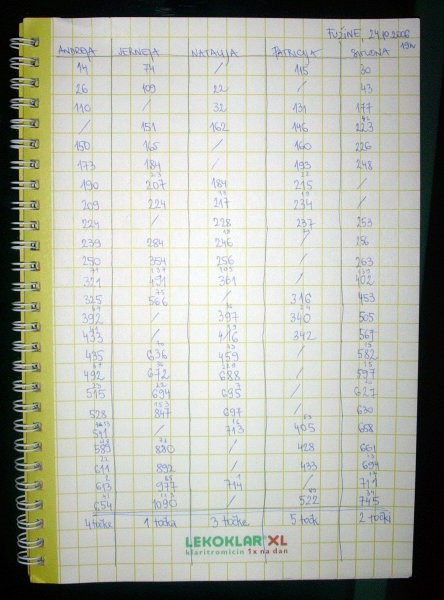 FUŽINE, 24.10.2006
ANDREJA JERNEJA NATALIJA PATRICIJA
14 74 / 115 30
26 109 22 / 43
110 / 32 131 177
/ 151 162 146 223
150 165 / 160 226
173 184 / 193 248
190 207 184 215 /
209 224 217 234 /
224 / 228 237 253
239 284 246 / 256
250 354 256 / 263
321 491 361 / 402
325 566 / 316 453
392 / 397 340 505
433 / 416 342 567
435 636 459 / 582
492 672 688 / 597
515 694 695 / 627
528 847 697 / 630
511 / 713 405 658
589 880 / 428 661
611 892 / 433 694
613 977 714 / 711
654 1090 / 522 745
4 točke 1 točka 3 točke 5 točk 2 točki
LEKOKLAR XL
klaritromicin 1x na dan